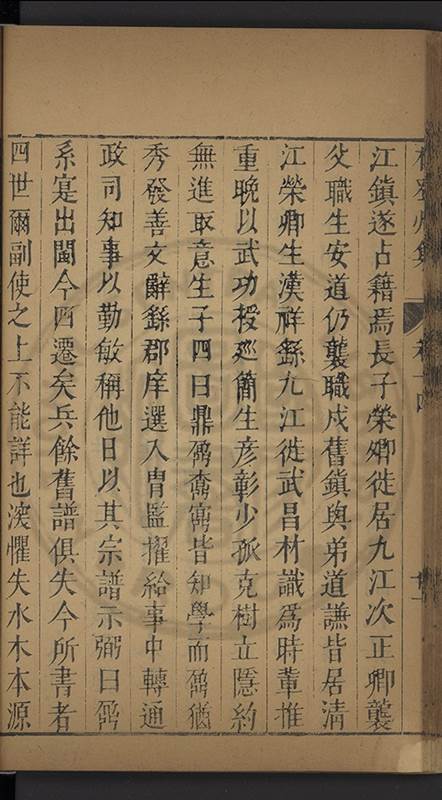 江鎮遂占籍焉長子榮卿徙居九江次正卿襲
父職生安道仍襲職戍舊鎮與弟道謙皆居清
江榮卿生漢祥繇九江徙武昌材識為時輩推
重晚以武功授廵簡生彦彰少孤克樹立隱約
無進取意生子四曰鼎鼒奫寯皆知學而鼒猶
秀發善文辭繇郡庠選入胄監擢給事中轉通
政司知事以勤敏稱他日以其宗譜示弼曰鼒
系寔出閩今四遷矣兵餘舊譜俱失今所書者
四世爾副使之上不能詳也深懼失水木本源